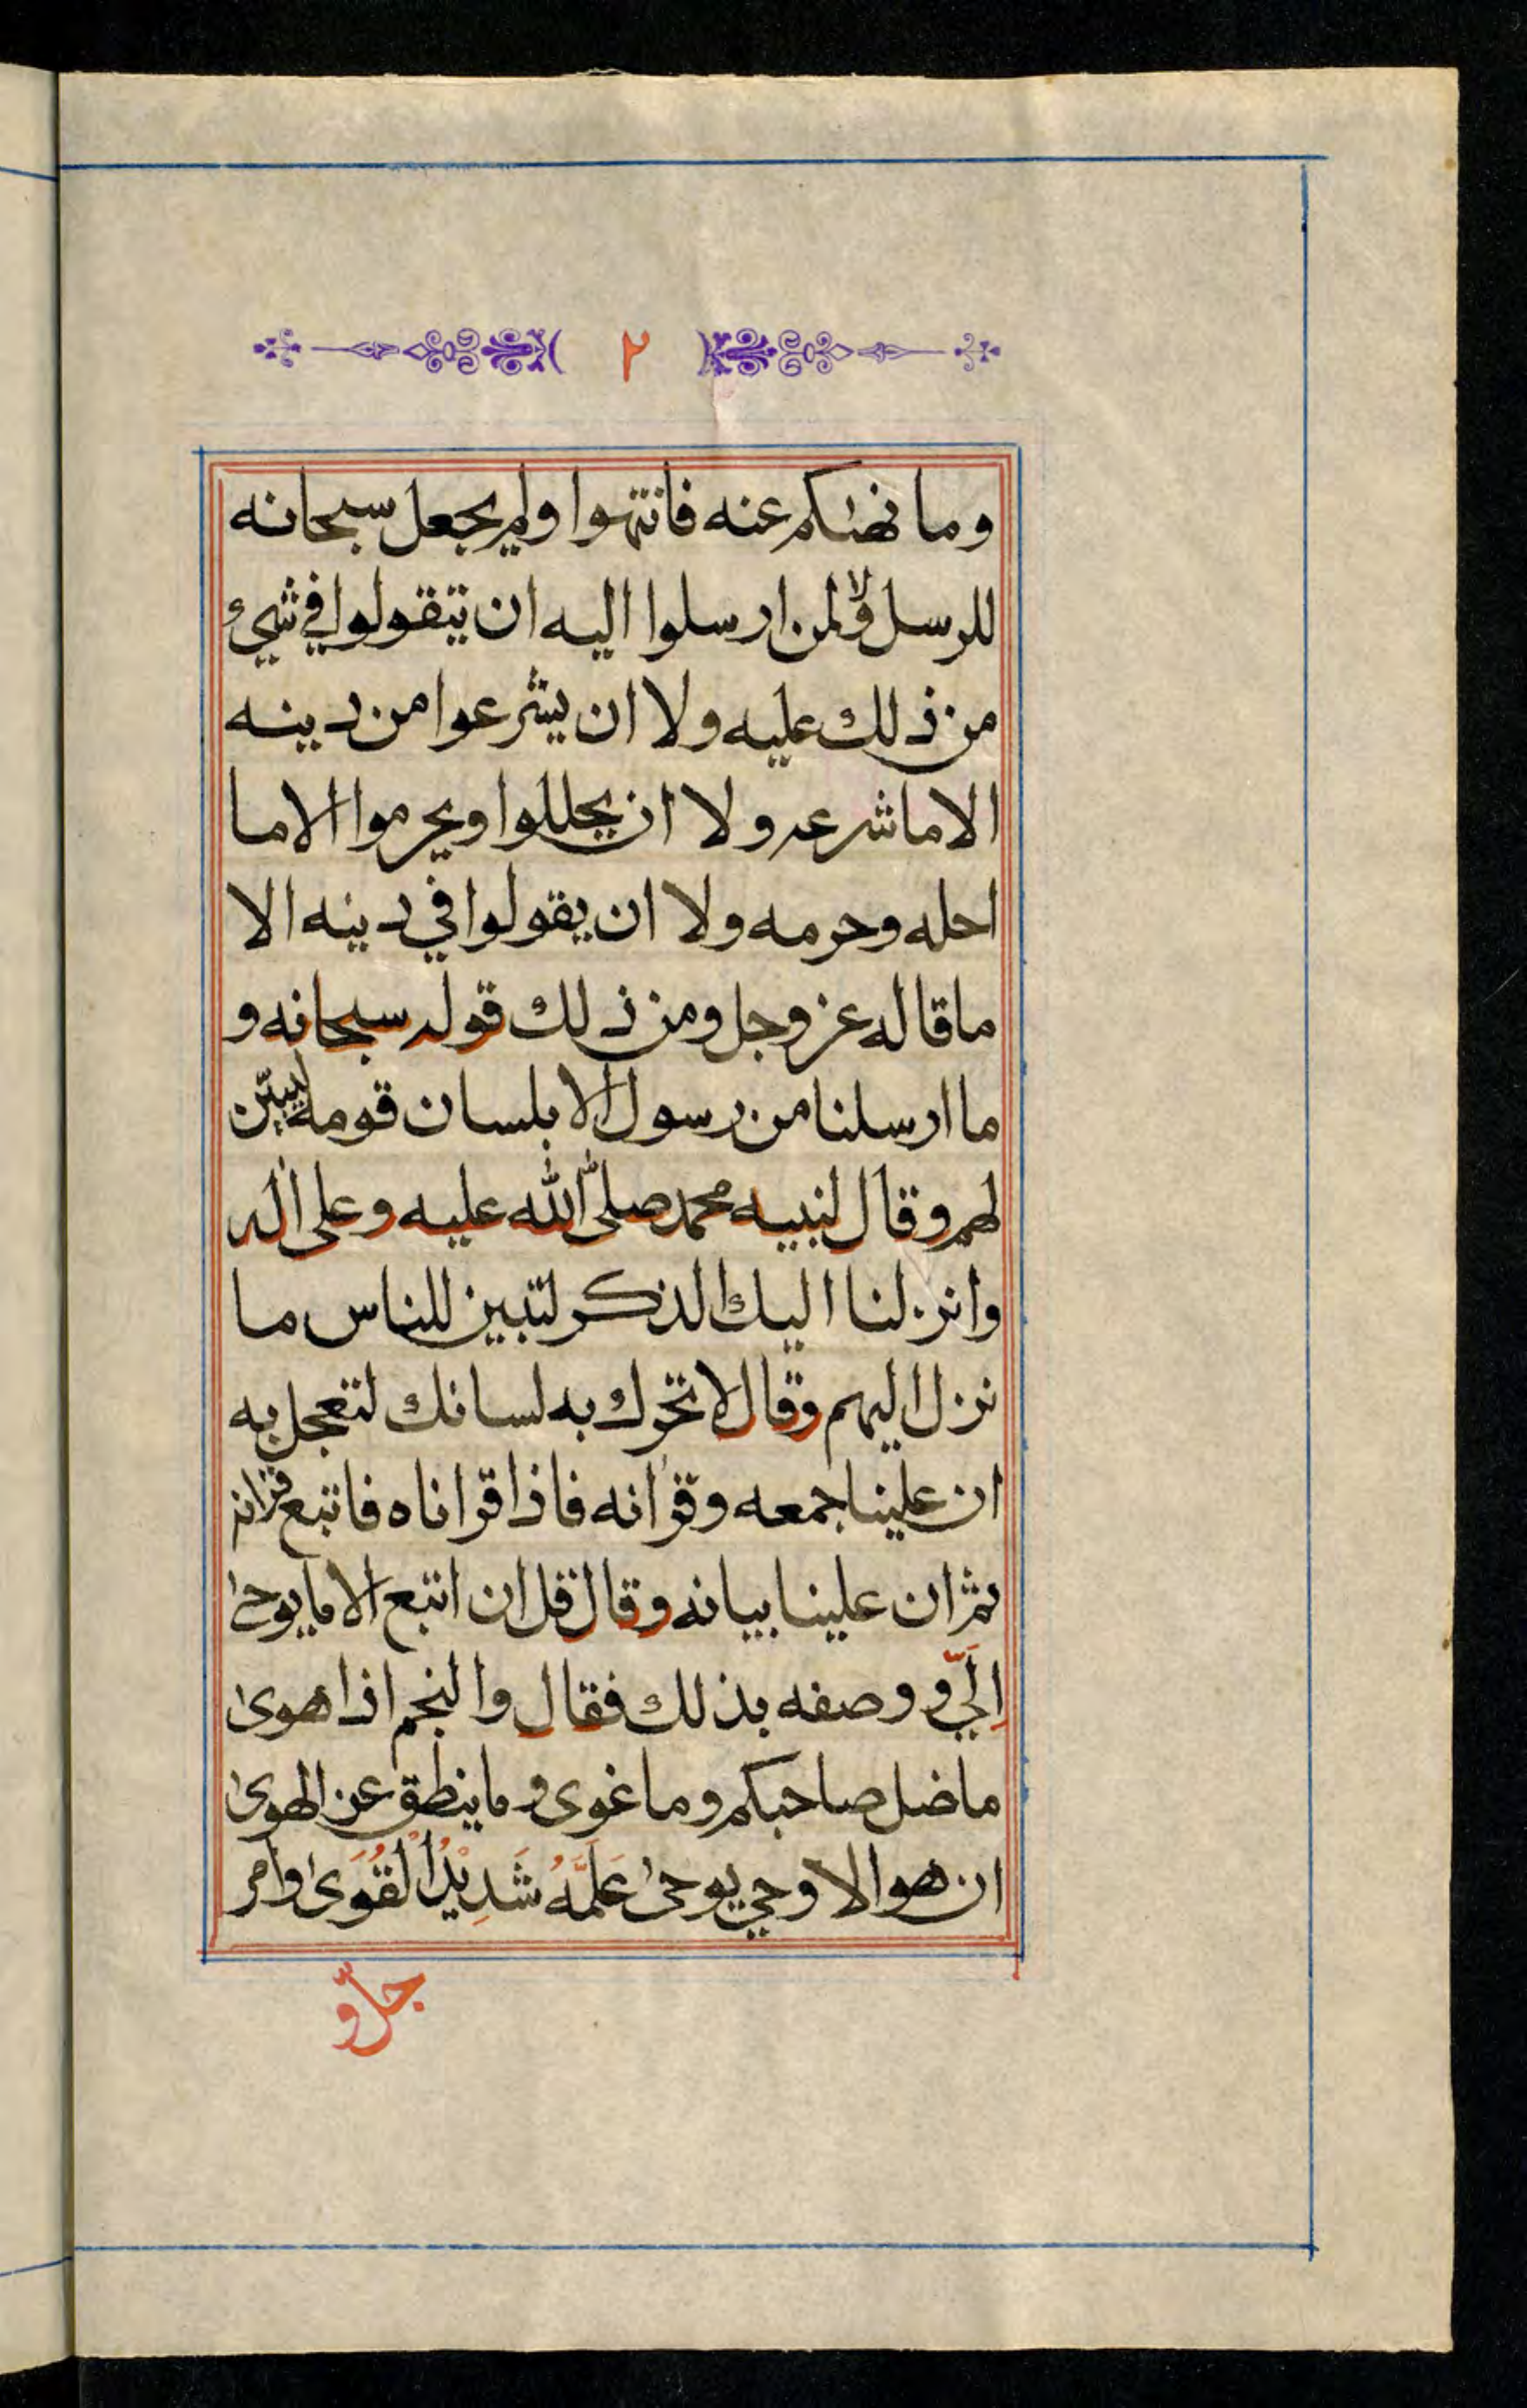 ٢
وما نهٮٰكم عنه فانتهوا ولم يجعل سبحانه
للرسل ولا لمن ارسلوا اليه ان يتقولوا في شيء
من ذلك عليه ولا ان يشرعوا من دينه
الا ما شرعه ولا ان يحللوا ويحرموا الا ما
احله وحرمه ولا ان يقولوا في دينه الا
ما قاله عز وجل ومن ذلك قوله سبحانه و
ما ارسلنا من رسول الا بلسان قومه ليبيّن
لهم وقال لنبيه محمد صلى الله عليه وعلى اله
وانزلنا اليك الذكر لتبين للناس ما
نزل اليهم وقال لا تحرك به لسانك لتعجل به
ان علينا جمعه وقرآنه فاذا قراناه فاتبع قرانه
ثم ان علينا بيانه وقال قل ان اتبع الا ما يوحىٰ
اِلَيّ و وصفه بذلك فقال والنجم اذا هوىٰ
ما ضل صاحبكم وما غوى وما ينطق عن الهوىٰ
ان هو الا وحي يوحىٰ عَلَّمَهُ شَدِيْدُ الْقُوَىٰ وامر
جلّ و